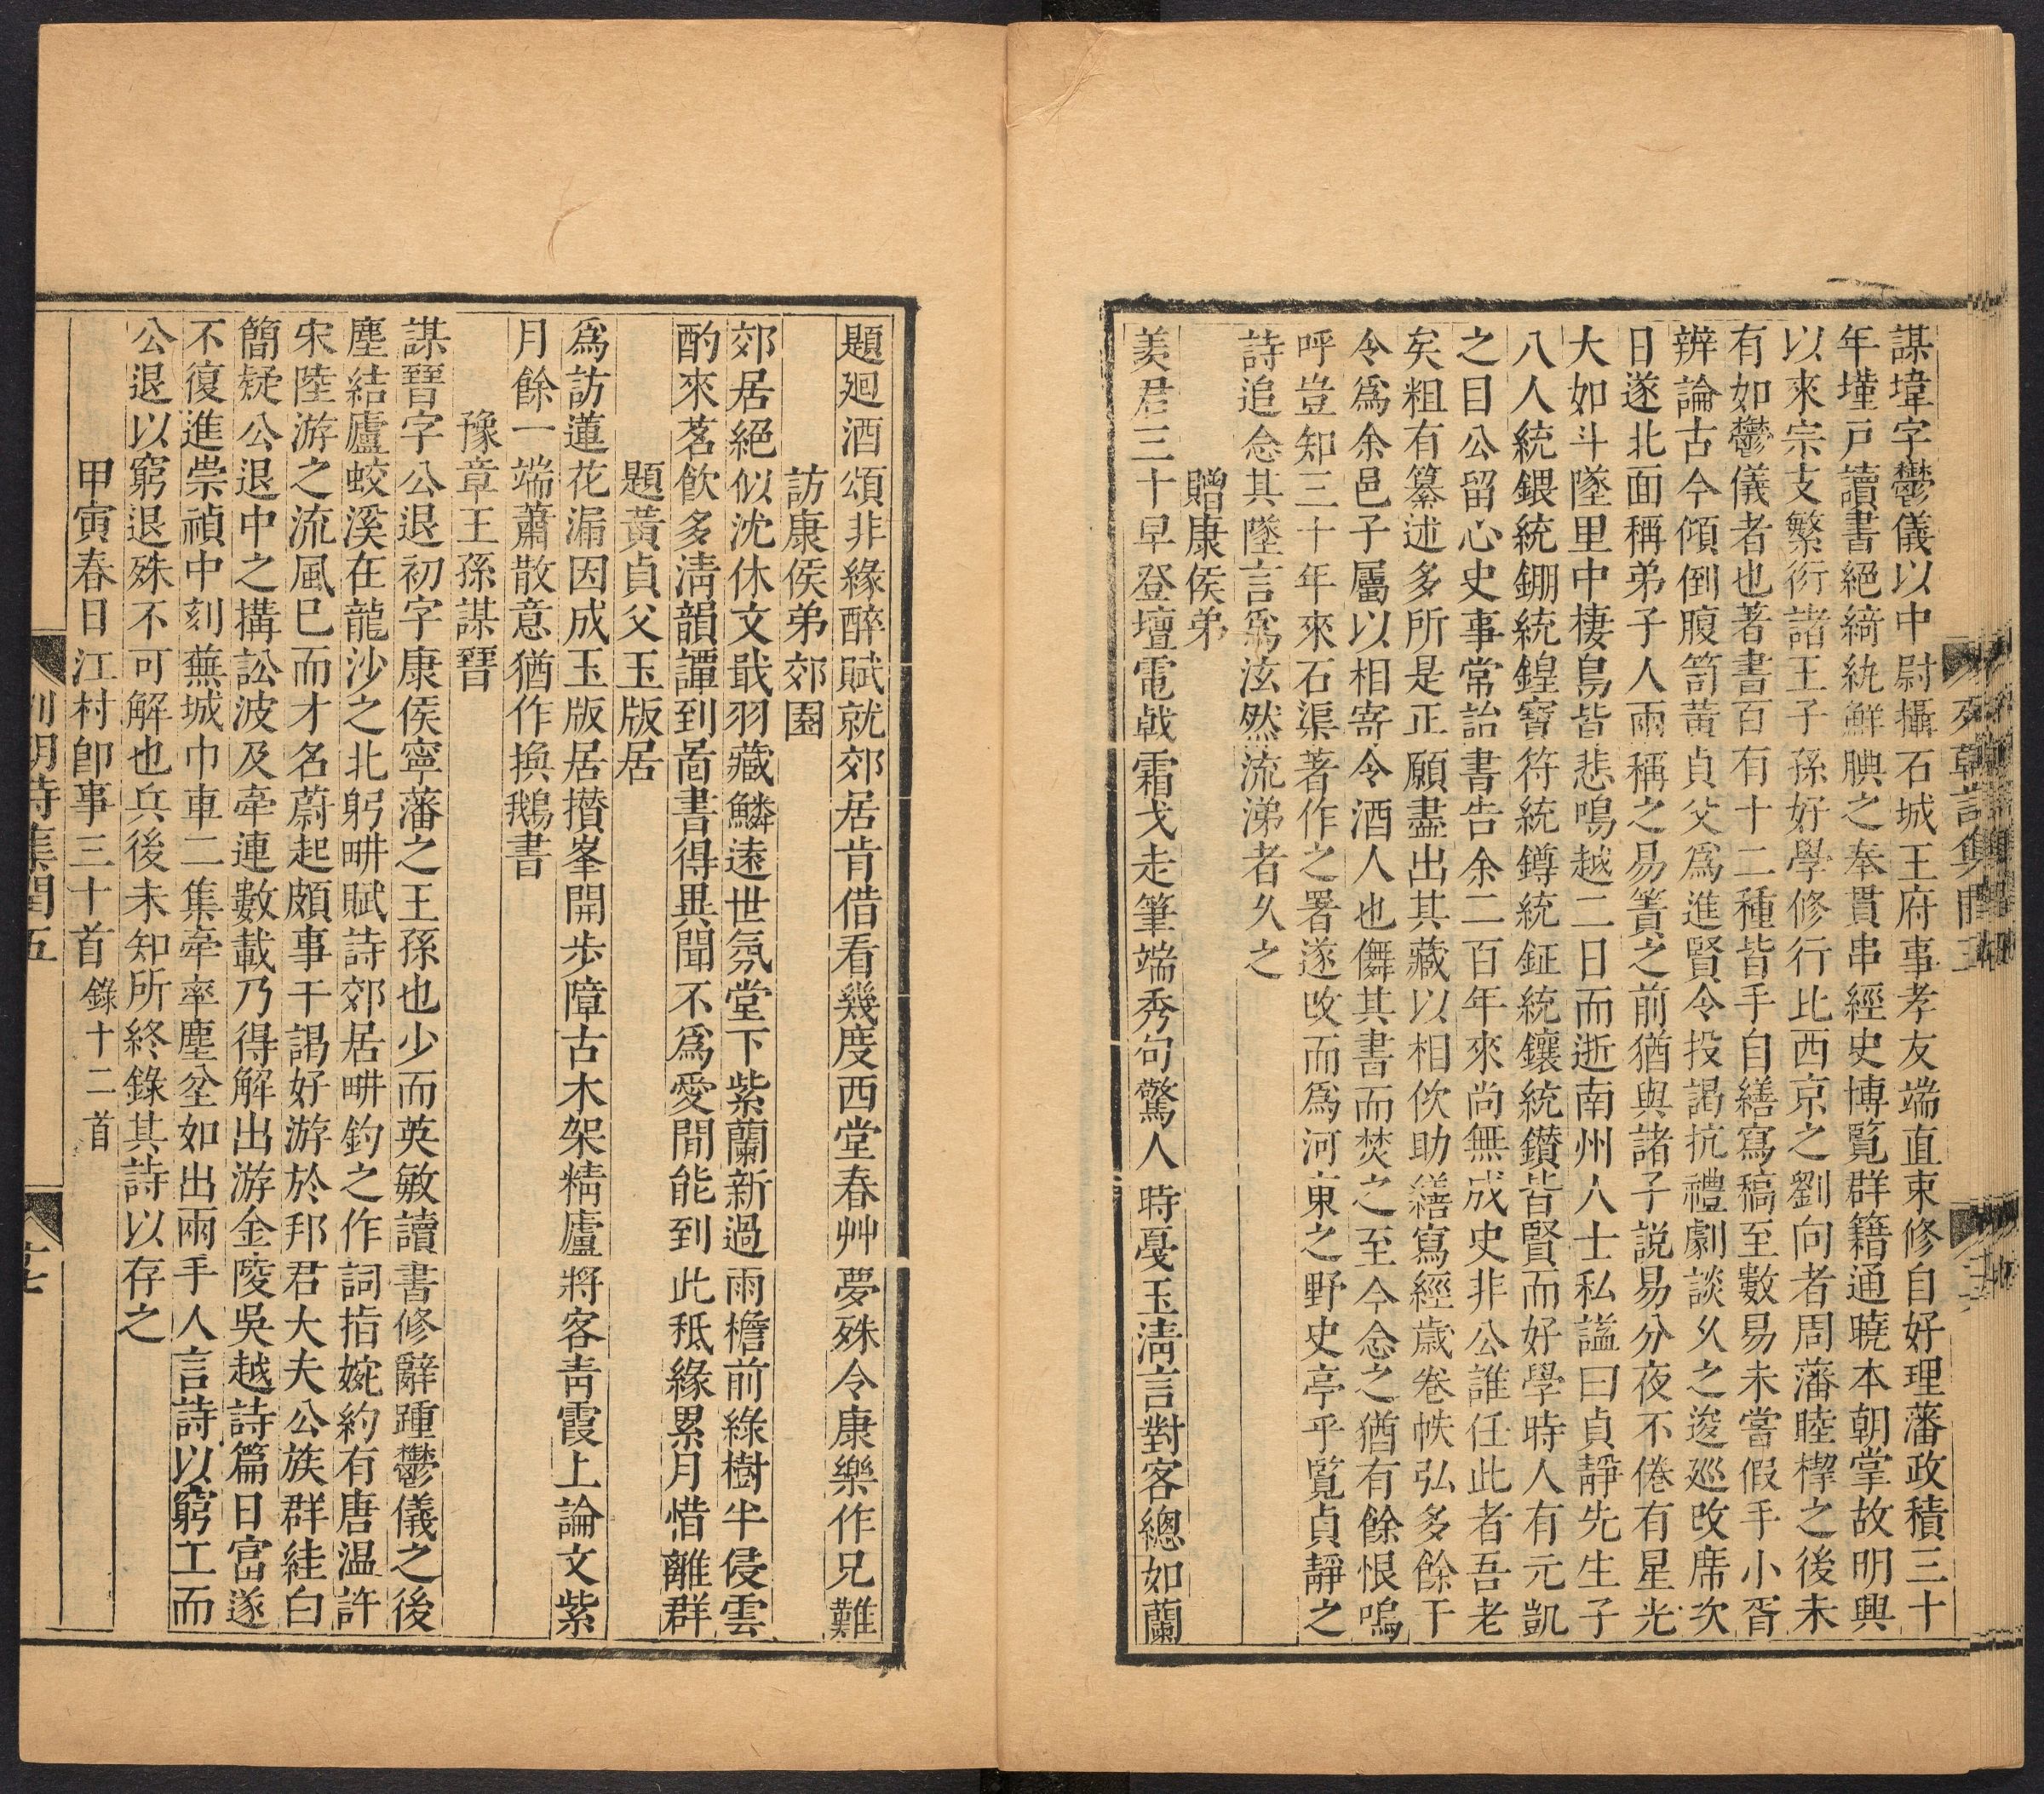 列朝詩集閏五
謀㙔字鬱儀以中尉攝石城王府事孝友端直束修自好理藩政積三十
年墐戸讀書絕綺紈鮮腆之奉貫串經史博覧群籍通曉本朝掌故明興
以來宗支繁衍諸王子孫好學修行比西京之劉向者周藩睦㮮之後未
有如鬱儀者也著書百有十二種皆手自繕寫稿至數易未嘗假手小胥
辨論古今傾倒腹笥黃貞父爲進賢令投謁抗禮劇談久之逡廵攺席次
日遂北面稱弟子人兩稱之易簀之前猶與諸子説易分夜不倦有星光
大如斗墜里中棲鳥皆悲鳴越二日而逝南州人士私謚曰貞靜先生子
八人統鍡統鎺統鍠寶符統鐏統鉦統鑲統鑚皆賢而好學時人有元凱
之目公留心史事常詒書告余二百年來尚無成史非公誰任此者吾老
矣粗有纂述多所是正願盡出其藏以相佽助繕寫經歲卷帙弘多餘干
令爲余邑子屬以相寄令酒人也儛其書而焚之至今念之猶有餘恨嗚
呼豈知三十年來石渠著作之署遂攺而爲河東之野史亭乎覧貞靜之
詩追念其墜言爲泫然流涕者久之
贈康侯弟
羡君三十早登壇電戟霜戈走筆端秀句驚人時戞玉淸言對客總如蘭
題廻酒頌非緣醉賦就郊居肯借看幾度西堂春艸夢殊令康樂作兄難
訪康侯弟郊園
郊居絕似沈休文戢羽藏鱗遠世氛堂下紫蘭新過雨檐前綠樹半侵雲
酌來茗飮多淸韻譚到啚書得異聞不爲愛閒能到此秪緣累月惜離群
題黃貞父玉版居
爲訪蓮花漏因成玉版居攢峯開歩障古木架精廬將客靑霞上論文紫
月餘一端蕭散意猶作換鵝書
豫章王孫謀㙔
謀㙔字公退初字康侯寧藩之王孫也少而英敏讀書修辭踵鬱儀之後
塵結廬蛟溪在龍沙之北躬畊賦詩郊居畊釣之作詞指婉約有唐温許
宋陸游之流風巳而才名蔚起頗事干謁好游於邦君大夫公族群絓白
簡疑公退中之搆訟波及牽連數載乃得解出游金陵吳越詩篇日富遂
不復進崇禎中刻蕪城巾車二集牽率塵坌如出兩手人言詩以窮工而
公退以窮退殊不可解也兵後未知所終錄其詩以存之
甲寅春日江村卽事三十首錄十二首
列朝詩集閏五